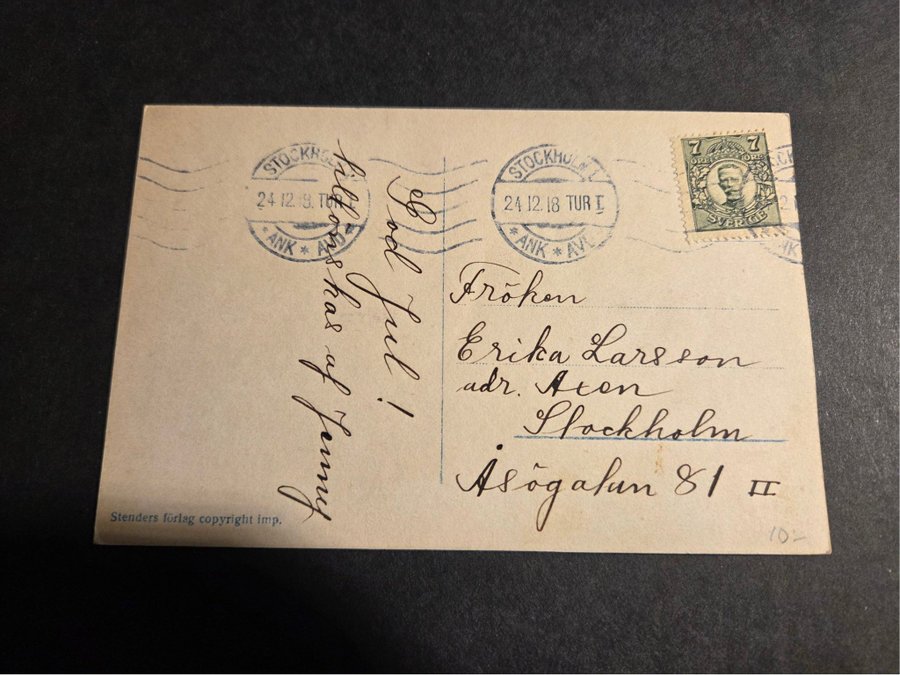 STOCKHOLM 1.
24.12.18. TUR I
* ANK * AVG *
STOCKHOLM 1.
24.12.18 TUR I
* ANK * AVG
7 7
ÖRE ÖRE
SVERIGE
God Jul!
tillönskas af Jenny
Fröken
Erika Larsson
adr. Axen
Stockholm
Åsögatan 81 II
Stenders förlag copyright imp.
10-